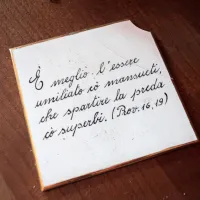 È meglio l'essere
umiliato cò mansueti,
che spartire la preda
cò superbi. (Prov. 16,19)